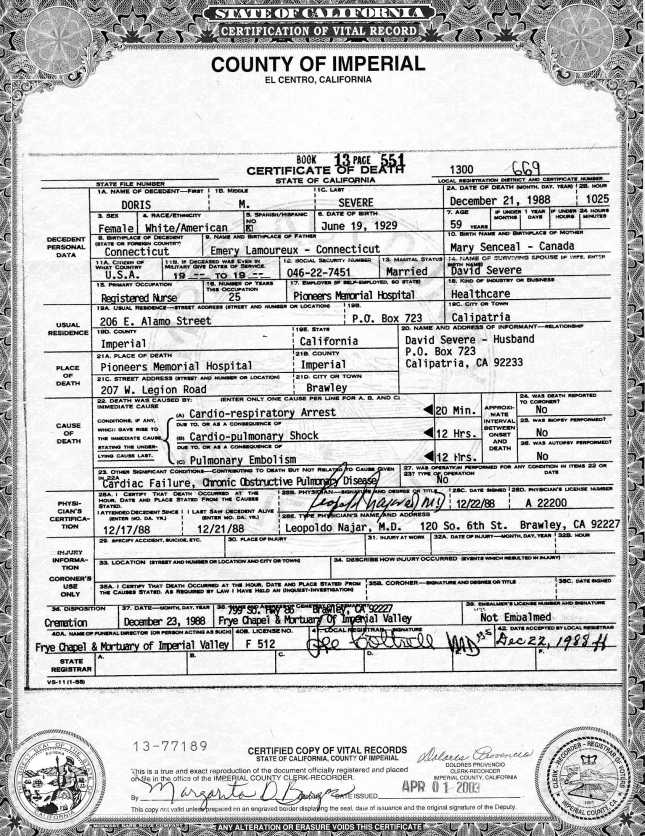 STATE OF CALIFORNIA
CERTIFICATION OF VITAL RECORD
COUNTY OF IMPERIAL
EL CENTRO, CALIFORNIA
BOOK 13 PAGE 551
CERTIFICATE OF DEATH
STATE OF CALIFORNIA
1300 669
STATE FILE NUMBER
LOCAL REGISTRATION DISTRICT AND CERTIFICATE NUMBER
DECEDENT PERSONAL DATA
1A. NAME OF DECEDENT—FIRST 1B. MIDDLE 1C. LAST 2A. DATE OF DEATH (MONTH, DAY, YEAR) 2B. HOUR
DORIS M. SEVERE December 21, 1988 1025
3. SEX 4. RACE/ETHNICITY 5. SPANISH/HISPANIC 6. DATE OF BIRTH 7. AGE IF UNDER 1 YEAR IF UNDER 24 HOURS
NO MONTHS DAYS HOURS MINUTES
Female White/American June 19, 1929 59 YEARS
8. BIRTHPLACE OF DECEDENT (STATE OR FOREIGN COUNTRY) 9. NAME AND BIRTHPLACE OF FATHER 10. BIRTH NAME AND BIRTHPLACE OF MOTHER
Connecticut Emery Lamoureux - Connecticut Mary Senceal - Canada
11A. CITIZEN OF WHAT COUNTRY 11B. IF DECEASED WAS EVER IN MILITARY GIVE DATES OF SERVICE. 12. SOCIAL SECURITY NUMBER 13. MARITAL STATUS 14. NAME OF SURVIVING SPOUSE (IF WIFE, ENTER BIRTH NAME)
U.S.A. 19 -- TO 19 -- 046-22-7451 Married David Severe
15. PRIMARY OCCUPATION 16. NUMBER OF YEARS THIS OCCUPATION 17. EMPLOYER (IF SELF-EMPLOYED, SO STATE) 18. KIND OF INDUSTRY OR BUSINESS
Registered Nurse 25 Pioneers Memorial Hospital Healthcare
USUAL RESIDENCE
19A. USUAL RESIDENCE—STREET ADDRESS (STREET AND NUMBER OR LOCATION) 19B. 19C. CITY OR TOWN
206 E. Alamo Street P.O. Box 723 Calipatria
19D. COUNTY 19E. STATE 20. NAME AND ADDRESS OF INFORMANT—RELATIONSHIP
Imperial California David Severe - Husband
P.O. Box 723
Calipatria, CA 92233
PLACE OF DEATH
21A. PLACE OF DEATH 21B. COUNTY
Pioneers Memorial Hospital Imperial
21C. STREET ADDRESS (STREET AND NUMBER OR LOCATION) 21D. CITY OR TOWN
207 W. Legion Road Brawley
CAUSE OF DEATH
22. DEATH WAS CAUSED BY: (ENTER ONLY ONE CAUSE PER LINE FOR A, B, AND C)
IMMEDIATE CAUSE
CONDITIONS, IF ANY, WHICH GAVE RISE TO THE IMMEDIATE CAUSE STATING THE UNDERLYING CAUSE LAST.
(A) Cardio-respiratory Arrest 20 Min.
DUE TO, OR AS A CONSEQUENCE OF
(B) Cardio-pulmonary Shock 12 Hrs.
DUE TO, OR AS A CONSEQUENCE OF
(C) Pulmonary Embolism 12 Hrs.
APPROXIMATE INTERVAL BETWEEN ONSET AND DEATH
24. WAS DEATH REPORTED TO CORONER?
No
25. WAS BIOPSY PERFORMED?
No
26. WAS AUTOPSY PERFORMED?
No
23. OTHER SIGNIFICANT CONDITIONS—CONTRIBUTING TO DEATH BUT NOT RELATED TO CAUSE GIVEN IN 22A
Cardiac Failure, Chronic Obstructive Pulmonary Disease
27. WAS OPERATION PERFORMED FOR ANY CONDITION IN ITEMS 22 OR 23? TYPE OF OPERATION DATE
No
PHYSICIAN'S CERTIFICATION
28A. I CERTIFY THAT DEATH OCCURRED AT THE HOUR, DATE AND PLACE STATED FROM THE CAUSES STATED.
28B. PHYSICIAN—SIGNATURE AND DEGREE OR TITLE 28C. DATE SIGNED 28D. PHYSICIAN'S LICENSE NUMBER
Leopoldo Najar MD 12/22/88 A 22200
I ATTENDED DECEDENT SINCE (ENTER MO. DA. YR.) I LAST SAW DECEDENT ALIVE (ENTER MO. DA. YR.) 28E. TYPE PHYSICIAN'S NAME AND ADDRESS
12/17/88 12/21/88 Leopoldo Najar, M.D. 120 So. 6th St. Brawley, CA 92227
INJURY INFORMATION
29. SPECIFY ACCIDENT, SUICIDE, ETC. 30. PLACE OF INJURY 31. INJURY AT WORK 32A. DATE OF INJURY—MONTH, DAY, YEAR 32B. HOUR
33. LOCATION (STREET AND NUMBER OR LOCATION AND CITY OR TOWN) 34. DESCRIBE HOW INJURY OCCURRED (EVENTS WHICH RESULTED IN INJURY)
CORONER'S USE ONLY
35A. I CERTIFY THAT DEATH OCCURRED AT THE HOUR, DATE AND PLACE STATED FROM THE CAUSES STATED, AS REQUIRED BY LAW I HAVE HELD AN (INQUEST-INVESTIGATION) 35B. CORONER—SIGNATURE AND DEGREE OR TITLE 35C. DATE SIGNED
36. DISPOSITION 37. DATE—MONTH, DAY, YEAR 39. EMBALMER'S LICENSE NUMBER AND SIGNATURE
799 So. Hwy 86 Brawley, CA 92227
Cremation December 23, 1988 Frye Chapel & Mortuary Of Imperial Valley Not Embalmed
40A. NAME OF FUNERAL DIRECTOR (OR PERSON ACTING AS SUCH) 40B. LICENSE NO. 41. LOCAL REGISTRAR—SIGNATURE 42. DATE ACCEPTED BY LOCAL REGISTRAR
Frye Chapel & Mortuary of Imperial Valley F 512 Lee Cottrell MD Dec 22, 1988
STATE REGISTRAR
A. B. C. D. F.
VS-11 (1-88)
13-77189
CERTIFIED COPY OF VITAL RECORDS
STATE OF CALIFORNIA, COUNTY OF IMPERIAL
This is a true and exact reproduction of the document officially registered and placed
on file in the office of the IMPERIAL COUNTY CLERK-RECORDER.
Dolores Provencio
DOLORES PROVENCIO
CLERK-RECORDER
IMPERIAL COUNTY, CALIFORNIA
By Margarita D. DATE ISSUED APR 01 2003
This copy not valid unless prepared on an engraved border displaying the seal, date of issuance and the original signature of the Deputy.
ANY ALTERATION OR ERASURE VOIDS THIS CERTIFICATE